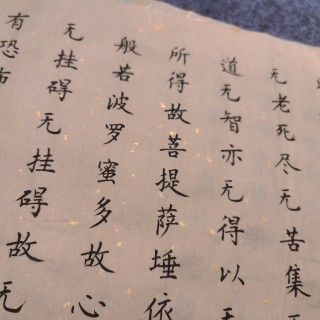 无老死尽无苦集
道无智亦无得以无
所得故菩提萨埵依
般若波罗蜜多故心
无挂碍无挂碍故无
有恐布